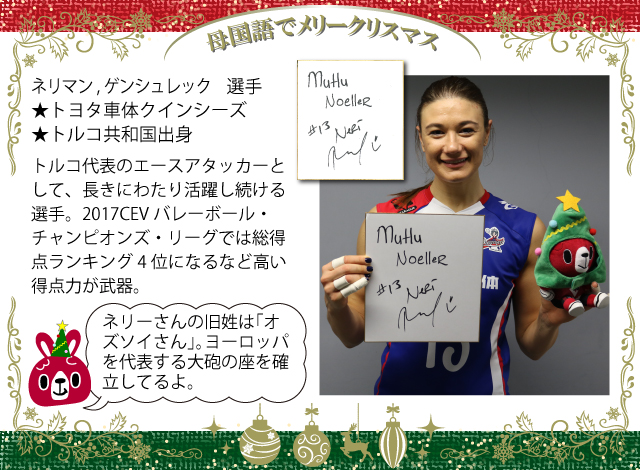 母国語でメリークリスマス
ネリマン,ゲンシュレック 選手
★トヨタ車体クインシーズ
★トルコ共和国出身
トルコ代表のエースアタッカーと
して、長きにわたり活躍し続ける
選手。2017CEVバレーボール・
チャンピオンズ・リーグでは総得
点ランキング4位になるなど高い
得点力が武器。
ネリーさんの旧姓は「オ
ズソイさん」。ヨーロッパ
を代表する大砲の座を確
立してるよ。
Mutlu
Noeller
#13 Neri
Mutlu
Noeller
#13 Neri
体
13